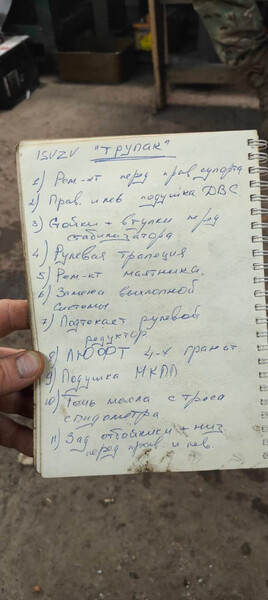 ISUZU "Трупак"
1) Рем-кт перед прав суппорта
2) Прав. и лев подушка ДВС
3) Стойки + втулки перед
стабилизатора
4) Рулевая трапеция
5) Рем-кт маятника.
6) Замена выхлопной
системы
7) Подтекает рулевой
редуктор
8) ЛЮФТ 4-х гранат
9) Подушка МКПП
10) Течь масла с троса
спидометра
11) Зад отбойники + низ
перед прав и лев